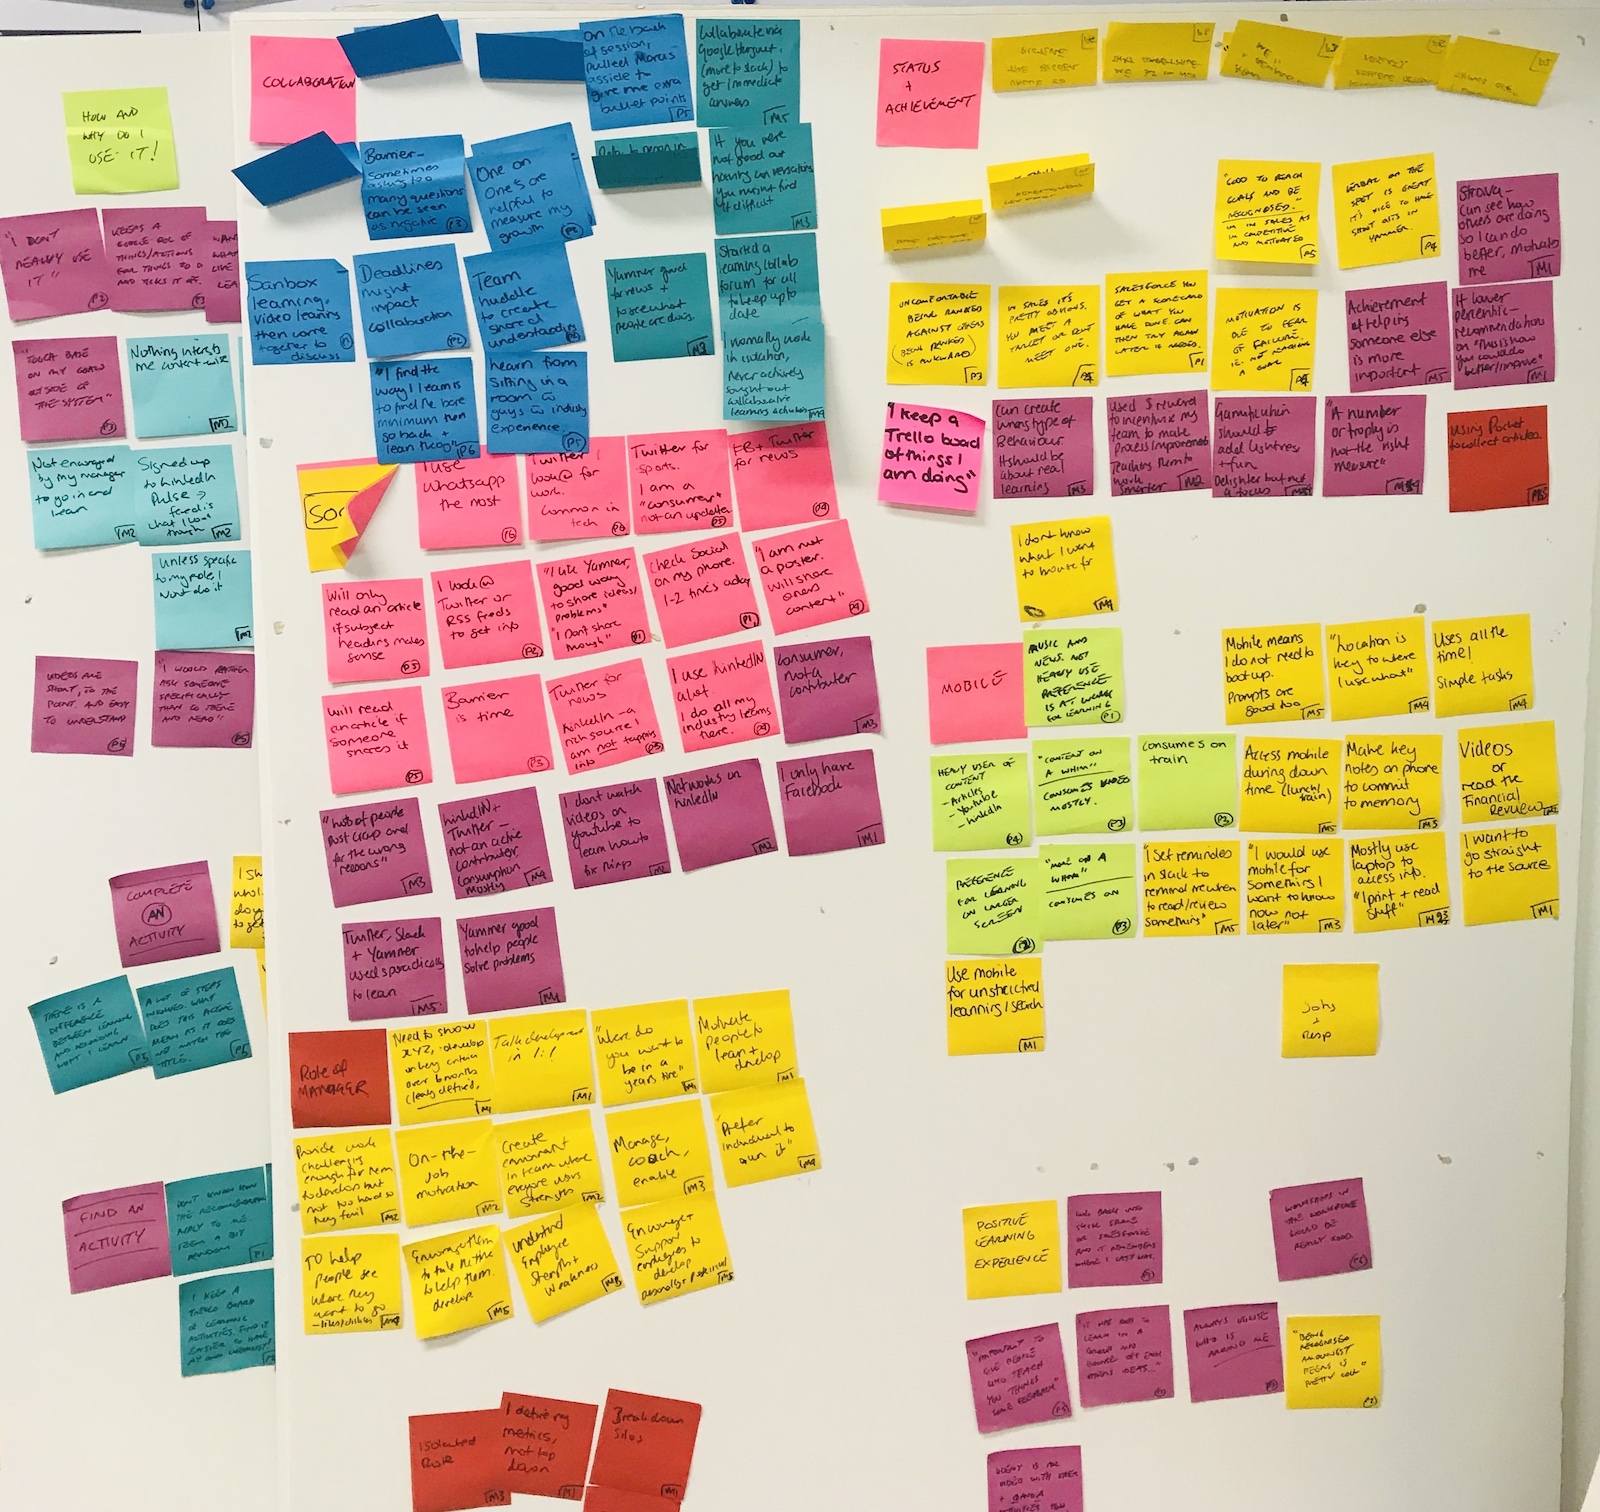 HOW AND
WHY DO I
USE IT!
"I DON'T
REALLY USE
IT"
P2
KEEPS A
GOOGLE DOC OF
THINGS/ACTIONS
FOR THINGS TO DO
AND TICKS IT OFF.
"TOUCH BASE
ON MY GOALS
OUTSIDE OF
THE SYSTEM"
P3
Nothing interests
me content-wise
M2
Not encouraged
by my manager
to go in and
learn
M2
Signed up
to LinkedIn
Pulse →
feed is
what I look
through
M2
Unless specific
to my role, I
won't do it
M2
VIDEOS ARE
SHORT, TO THE
POINT, AND EASY
TO UNDERSTAND
P6
"I WOULD RATHER
ASK SOMEONE
SPECIFICALLY
THAN GO THERE
AND READ"
P5
COMPLETE
AN
ACTIVITY
THERE IS A
DIFFERENCE
BETWEEN LEARNING
AND
WHAT I LEARN
P5
A LOT OF STEPS
INVOLVED. WHAT
DOES THIS ACTIVE
MEAN AS IT DOES
NOT MATCH THE
TITLE.
P6
FIND AN
ACTIVITY
DON'T KNOW HOW
THE RECOMMENDATIONS
APPLY TO ME.
SEEM A BIT
RANDOM
P1
I KEEP A
TRELLO BOARD
OF LEARNING
ACTIVITIES. FIND IT
EASIER TO HAVE
MY OWN
COLLABORATION
On the back
of session,
pulled Marcus
asside to
give me extra
bullet points
P5
Collaborate via
Google Hangout,
(more to slack) to
get immediate
answers
M5
Barrier-
sometimes
asking too
many questions
can be seen
as negative
P3
One on
One's are
helpful to
measure my
growth
If you were
not good at
having conversations
you might find
it difficult
M3
Sanbox
learning.
Video learning
then come
together to
discuss
Deadlines
might
impact
collaboration
P2
Team
huddle
to create
shared
understanding
P2
Yammer good
for news +
to see what
people are doing.
M3
Started a
learning collab
forum for all
to keep up to
date
"I find the
way I learn is
to find the bare
minimum then
go back +
learn things"
P6
Learn from
sitting in a
room w
guys w industry
experience.
P5
I normally work
in isolation,
Never actively
sought out
collaborative
learning activities
M4
I use
WhatsApp
the most
P6
Twitter I
look @ for
work.
Common in
tech
P6
Twitter for
sports.
I am a
"consumer"
not an updater
P5
FB + Twitter
for news
P4
Will only
read an article
if subject
headers makes
sense
P5
I look @
Twitter or
RSS feeds
to get info
P2
"I like Yammer,
good way
to share ideas/
problems"
"I Don't share
enough"
P1
Check Social
on my phone.
1-2 times a day
P1
"I am not
a poster.
Will share
others
content"
P4
will read
an article if
someone
shares it
P5
Barrier
is time
P3
Twitter for
news
LinkedIn - a
rich source I
am not tapping
into
P3
I use LinkedIN
a lot.
I do all my
industry learns
there.
P4
Consumer,
not a
contributer
M3
"most of people
post crap and
for the wrong
reasons"
M3
LinkedIN +
Twitter -
not an active
contributor
Consumption
mostly
M4
I don't watch
videos on
youtube to
learn how to
fix things
M2
Networks on
LinkedIN
M2
I only have
Facebook
M1
Twitter, Slack
+ Yammer
used sporadically
to learn
M5
Yammer good
to help people
solve problems
M4
Role of
MANAGER
Need to show
XYZ, develop
in key criteria
over 6 months
clearly defined,
M1
Talk development
in 1:1
M1
"Where do
you want to
be in a
years time"
M1
Motivate
people to
learn +
develop
M1
Provide work
challenging
enough for them
to develop but
not too hard so
they fail
M2
On-the-
Job
motivation
M2
Create
environment
in team where
everyone works
Strengths
M2
Manage,
coach,
enable
M3
"Prefer
individual to
own it"
M4
TO help
people see
where they
want to go
- likes/dislikes
M4
Encourage them
to take the time
to help them.
develop
M5
Understand
Employee
Strength +
Weakness
Encourage +
Support
employees to
develop
personally + professional
M5
Isolated
Role
M3
I define my
metrics,
not top
down
M1
Breakdown
Silos
M1
STATUS
+
ACHIEVEMENT
"GOOD TO REACH
GOALS AND BE
RECOGNISED."
IN SALES AS
IM COMPETITIVE
AND MOTIVATED
P5
VERBAL ON THE
SPOT IS GREAT
IT'S NICE TO HAVE
SHOUT OUTS IN
YAMMER.
P4
Strava -
Can see how
others are doing
so I can do
better, motivates
me
M1
UNCOMFORTABLE
BEING RANKED
AGAINST OTHERS
(BEING RANKED
IS AWKWARD)
P3
IN SALES ITS
PRETTY OBVIOUS.
YOU MEET A
TARGET OR DON'T
MEET ONE.
SALESFORCE YOU
GET A SCORECARD
OF WHAT YOU
HAVE DONE. CAN
THEN TRY AGAIN
LATER IF NEEDED.
P1
MOTIVATION IS
DUE TO FEAR
OF FAILURE.
IE: NOT REACHING
A GOAL
Achievement
of helping
someone else
is more
important
M5
If lower
percentile -
recommendations
on "This is how
you could do
better/improve"
M1
"I keep a
Trello board
of things I
am doing"
Can create
wrong type of
Behaviour
It should be
about real
learning
M3
Used $ reward
to incentivise my
team to make
Process improvements
Teaching them to
work
smarter
M2
Gamification
should
add lightness
+ fun
Delighter but not
a focus
"A number
or trophy is
not the right
measure"
M4
Using Pocket
to collect articles
I don't know
what I want
to browse for
M4
MOBILE
MUSIC AND
NEWS. NOT
HEAVY USE
PREFERENCE
IS AT WORK
FOR LEARNING
P1
Mobile means
I do not need to
boot up.
Prompts are
good too
M5
"Location is
key to where
I use what"
M4
Uses all the
time!
Simple tasks
M4
HEAVY USER OF
CONTENT
- Articles
- Youtube
- LinkedIn
P4
"CONTENT ON
A WHIM"
CONSUMES VIDEO
MOSTLY.
P3
Consumes on
train
P2
Access mobile
during down
time (lunch/
train)
M5
Make key
notes on phone
to commit
to memory
M5
Videos
or
read the
Financial
Review
PREFERENCE
FOR LEARNING
ON LARGER
SCREEN
"MORE ON A
WHIM"
CONSUMES ON
P3
"I Set reminders
in slack to
remind me when
to read/review
something"
M5
"I would use
mobile for
something I
want to know
now not
later"
M3
Mostly use
laptop to
access info.
"I print + read
stuff"
I want to
go straight
to the source
M1
Use mobile
for unstructured
learning/search
M1
Jobs
+
Resp
POSITIVE
LEARNING
EXPERIENCE
WORKSHOPS IN
THE WORKPLACE
WOULD BE
REALLY GOOD.
P6
"IMPORTANT TO
GIVE PEOPLE
WHO TEACH
YOU THINGS
SOME FEEDBACK"
"IT WAS GOOD TO
LEARN IN A
GROUP AND
BOUNCE OFF EACH
OTHERS IDEAS..."
ALWAYS UTILISE
WHO IS
AROUND ME
"BEING
RECOGNISED
AMONGST
PEERS IS
PRETTY COOL"